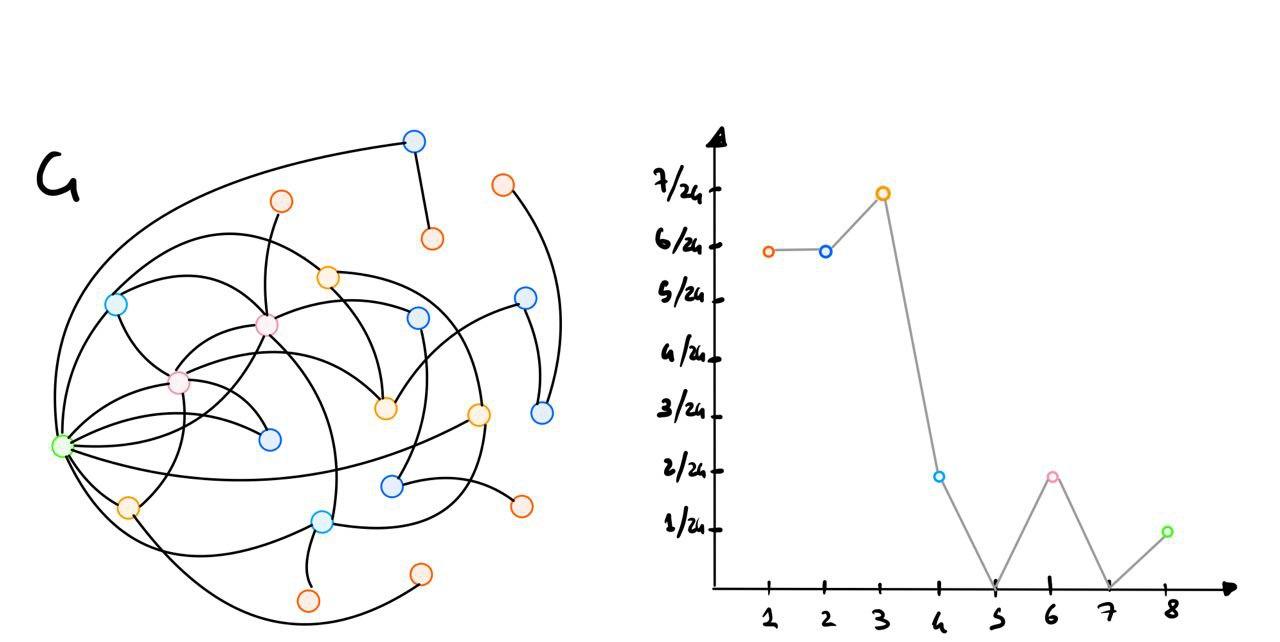 G
7/24
6/24
5/24
4/24
3/24
2/24
1/24
1 2 3 4 5 6 7 8